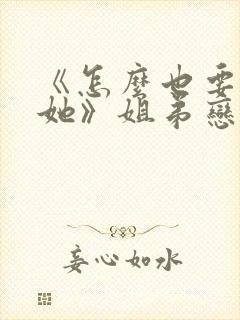 《怎麼也要
她》姐弟戀
妄心如水